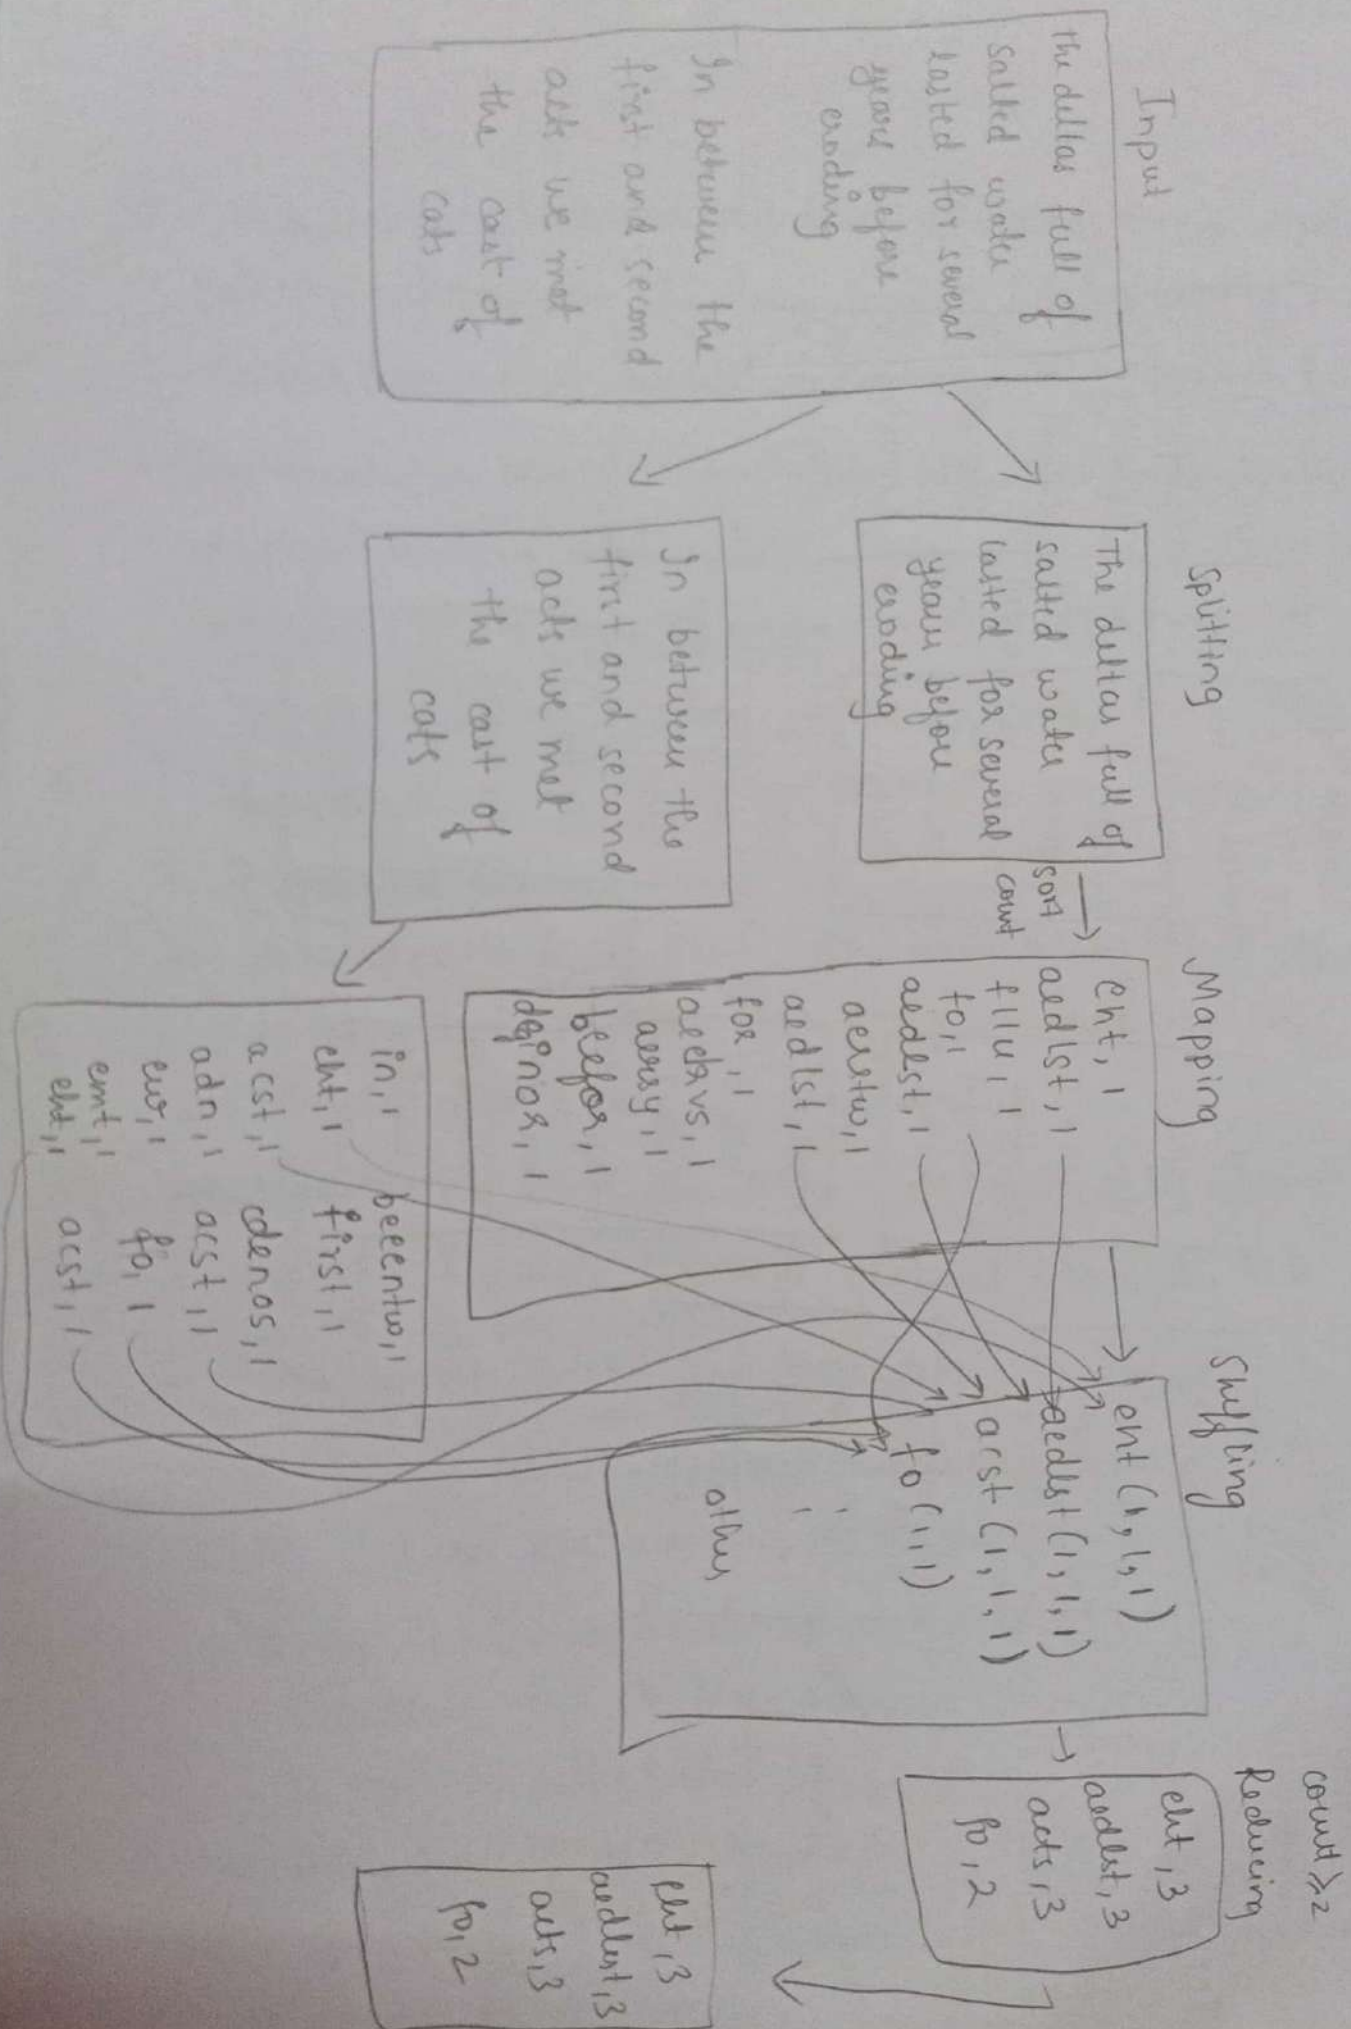 Input
the deltas full of
salted water
lasted for several
years before
eroding
In between the
first and second
acts we met
the cast of
cats
Splitting
The deltas full of
salted water
lasted for several
years before
eroding
In between the
first and second
acts we met
the cast of
cats
sort
count
Mapping
eht, 1
aedlst, 1
fllu, 1
fo, 1
aedlst, 1
aertw, 1
aedlst, 1
for, 1
aeelrvs, 1
aersy, 1
beefor, 1
deginor, 1
in, 1 beeentw, 1
eht, 1 first, 1
acst, 1 cdenos, 1
adn, 1 acst, 1
ew, 1 fo, 1
emt, 1
eht, 1 acst, 1
Shuffling
eht (1, 1, 1)
aedlst (1, 1, 1)
acst (1, 1, 1)
fo (1, 1)
others
count ≥ 2
Reducing
eht, 3
aedlst, 3
acts, 3
fo, 2
eht, 3
aedlst, 3
acts, 3
fo, 2